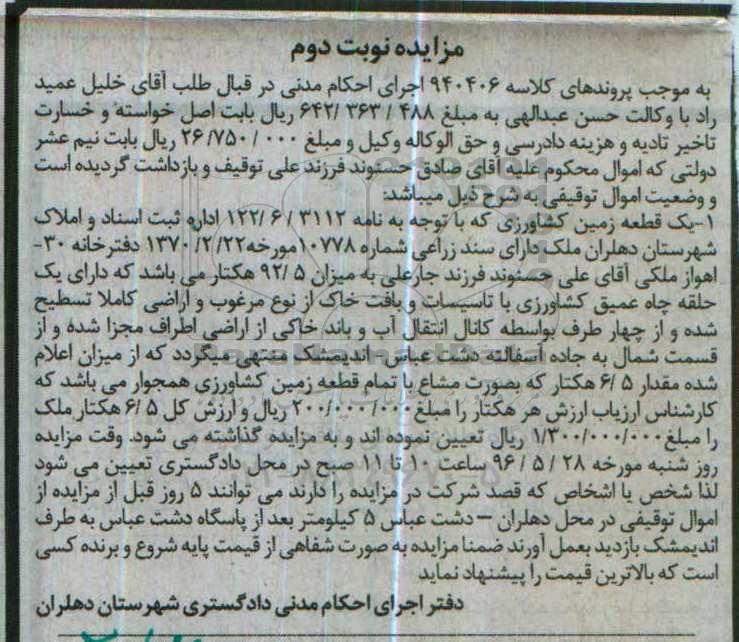 مزایده نوبت دوم
به موجب پرونده‌های کلاسه ۹۴۰۴۰۶ اجرای احکام مدنی در قبال طلب آقای خلیل عمید
راد با وکالت حسن عبدالهی به مبلغ ۴۸۸ / ۳۶۳ / ۶۴۲ ریال بابت اصل خواسته و خسارت
تاخیر تادیه و هزینه دادرسی و حق الوکاله وکیل و مبلغ ۰۰۰ / ۲۶/۷۵۰ ریال بابت نیم عشر
دولتی که اموال محکوم علیه آقای صادق حسنوند فرزند علی توقیف و بازداشت گردیده است
و وضعیت اموال توقیفی به شرح ذیل میباشد:
۱-یک قطعه زمین کشاورزی که با توجه به نامه ۳۱۱۲ / ۶ /۱۲۲ اداره ثبت اسناد و املاک
شهرستان دهلران ملک دارای سند زراعی شماره ۱۰۷۷۸مورخه۱۳۷۰/۲/۲۲ دفترخانه ۳۰-
اهواز ملکی آقای علی حسنوند فرزند جارعلی به میزان ۹۲/۵ هکتار می باشد که دارای یک
حلقه چاه عمیق کشاورزی با تاسیسات و بافت خاک از نوع مرغوب و اراضی کاملا تسطیح
شده و از چهار طرف بواسطه کانال انتقال آب و باند خاکی از اراضی اطراف مجزا شده و از
قسمت شمال به جاده آسفالته دشت عباس- اندیمشک منتهی میگردد که از میزان اعلام
شده مقدار ۶/۵ هکتار که بصورت مشاع با تمام قطعه زمین کشاورزی همجوار می باشد که
کارشناس ارزیاب ارزش هر هکتار را مبلغ ۲۰۰/۰۰۰/۰۰۰ ریال و ارزش کل ۶/۵ هکتار ملک
را مبلغ ۱/۳۰۰/۰۰۰/۰۰۰ ریال تعیین نموده اند و به مزایده گذاشته می شود. وقت مزایده
روز شنبه مورخه ۲۸ / ۵ / ۹۶ ساعت ۱۰ تا ۱۱ صبح در محل دادگستری تعیین می شود
لذا شخص یا اشخاص که قصد شرکت در مزایده را دارند می توانند ۵ روز قبل از مزایده از
اموال توقیفی در محل دهلران – دشت عباس ۵ کیلومتر بعد از پاسگاه دشت عباس به طرف
اندیمشک بازدید بعمل آورند ضمنا مزایده به صورت شفاهی از قیمت پایه شروع و برنده کسی
است که بالاترین قیمت را پیشنهاد نماید
دفتر اجرای احکام مدنی دادگستری شهرستان دهلران